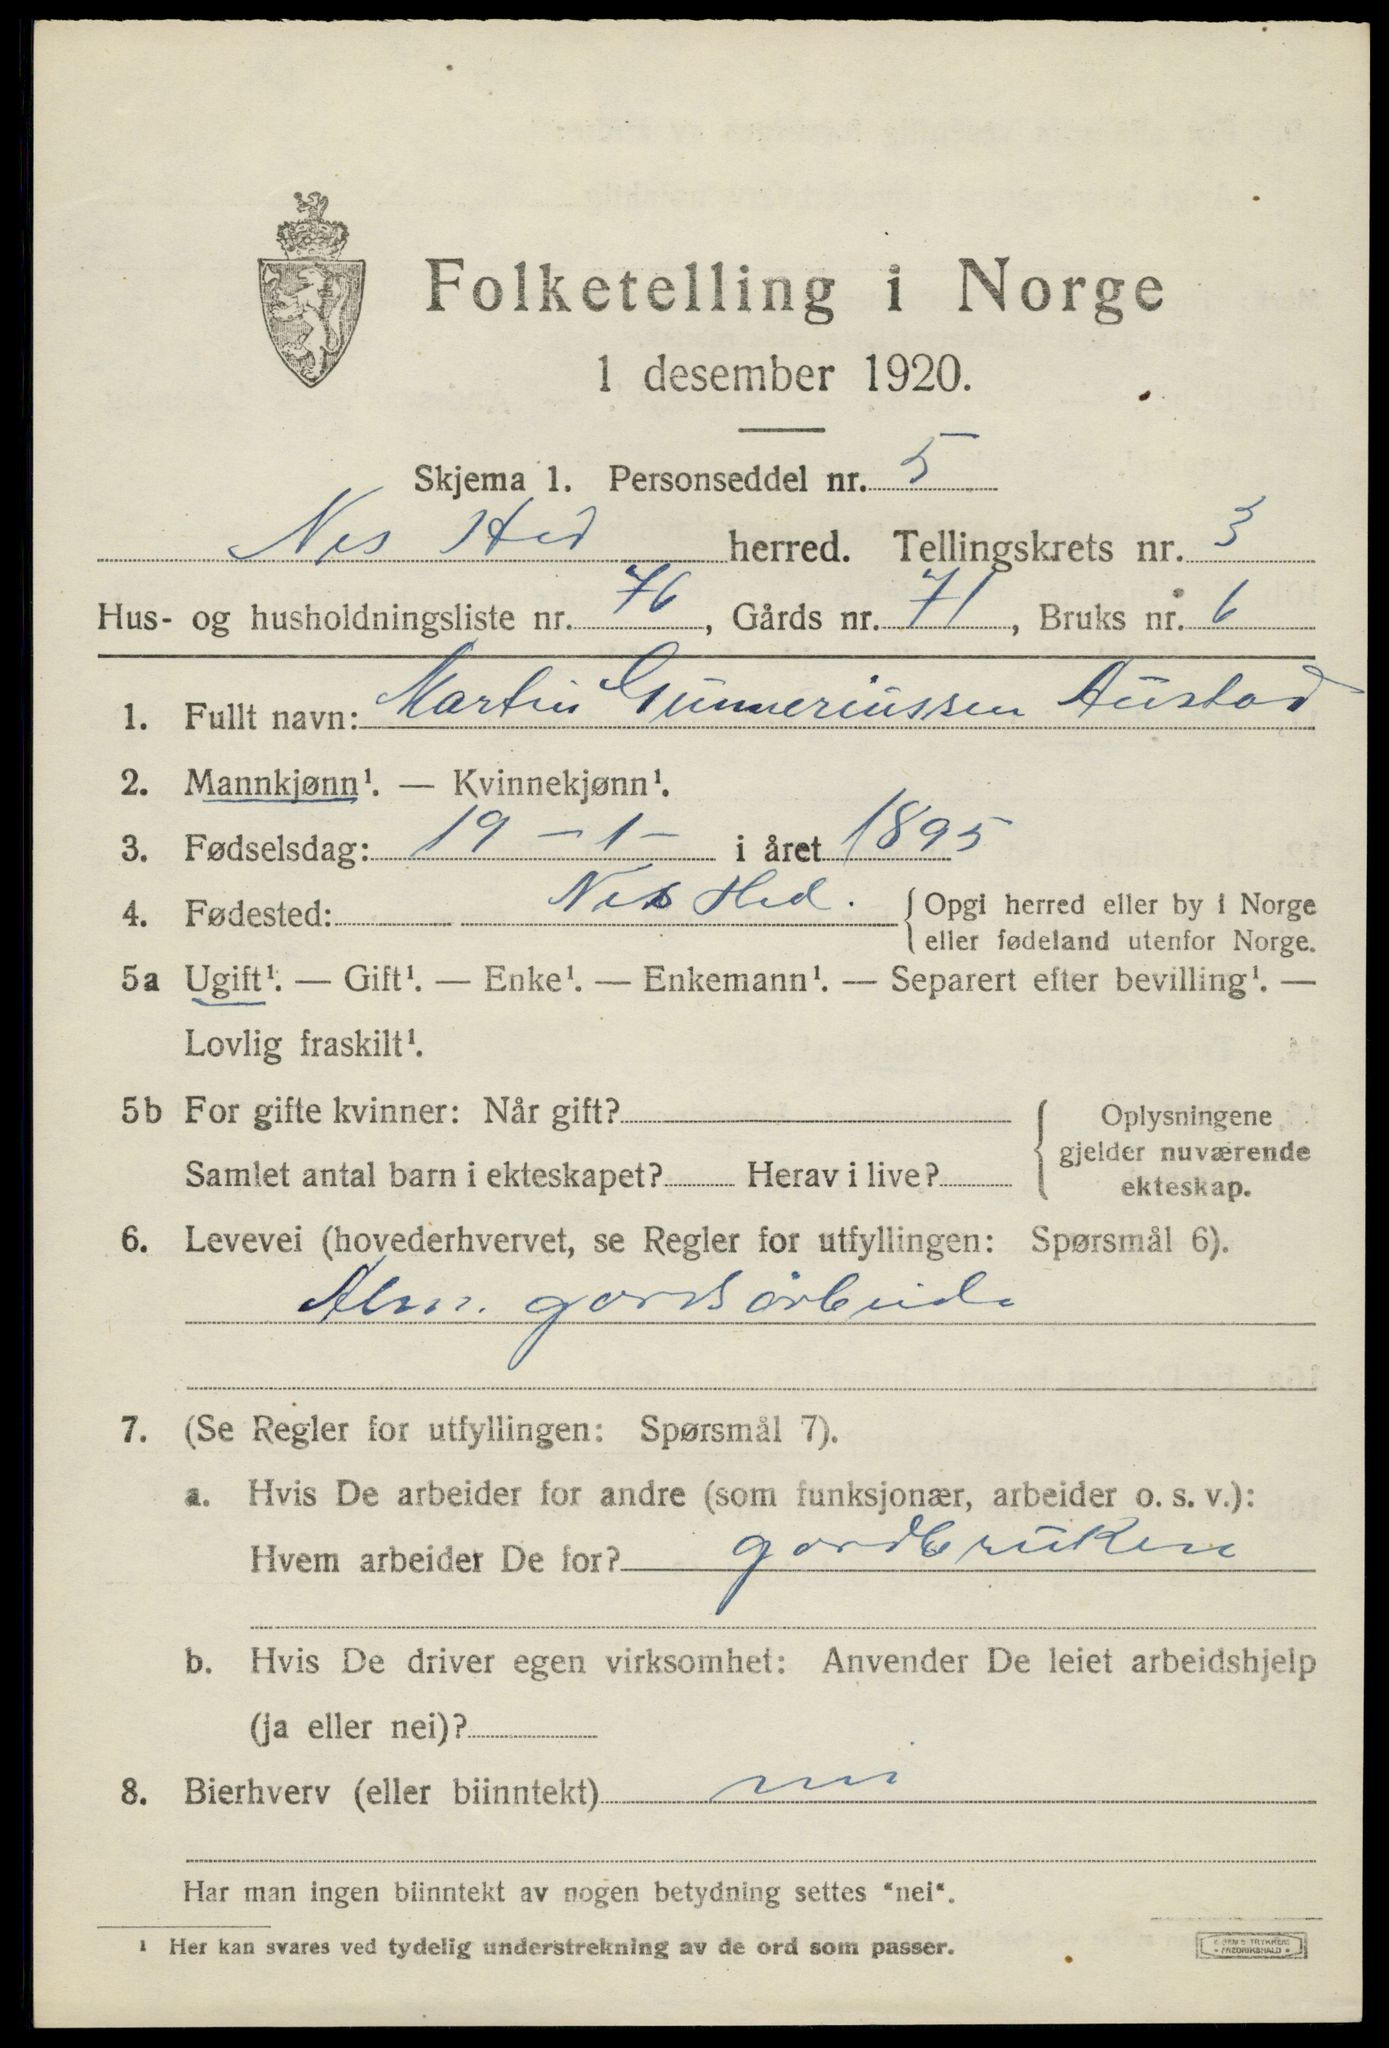 Folketelling i Norge
1 desember 1920.
Skjema 1. Personseddel nr. 5
Nes Hed herred. Tellingskrets nr. 3
Hus- og husholdningsliste nr. 76, Gårds nr. 71, Bruks nr. 6
1. Fullt navn: Martin Gunneriussen Austad
2. Mannkjønn¹. — Kvinnekjønn¹.
3. Fødselsdag: 19 – 1 – i året 1895
4. Fødested: Nes Hed. { Opgi herred eller by i Norge
eller fødeland utenfor Norge.
5a Ugift¹. — Gift¹. — Enke¹. — Enkemann¹. — Separert efter bevilling¹. —
Lovlig fraskilt¹.
5b For gifte kvinner: Når gift? { Oplysningene
gjelder nuværende
Samlet antal barn i ekteskapet? Herav i live?
ekteskap.
6. Levevei (hovederhvervet, se Regler for utfyllingen: Spørsmål 6).
Alm. gardsarbeide
7. (Se Regler for utfyllingen: Spørsmål 7).
a. Hvis De arbeider for andre (som funksjonær, arbeider o. s. v.):
Hvem arbeider De for? gardbruken
b. Hvis De driver egen virksomhet: Anvender De leiet arbeidshjelp
(ja eller nei)?
8. Bierhverv (eller biinntekt) nei
Har man ingen biinntekt av nogen betydning settes "nei".
¹ Her kan svares ved tydelig understrekning av de ord som passer.
TRYKKERI
FREDRIKSHALD